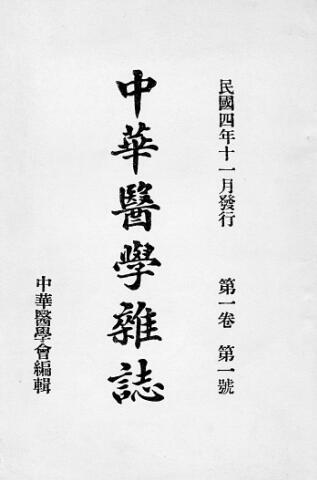 民國四年十一月發行 第一卷 第一號
中華醫學雜誌
中華醫學會編輯